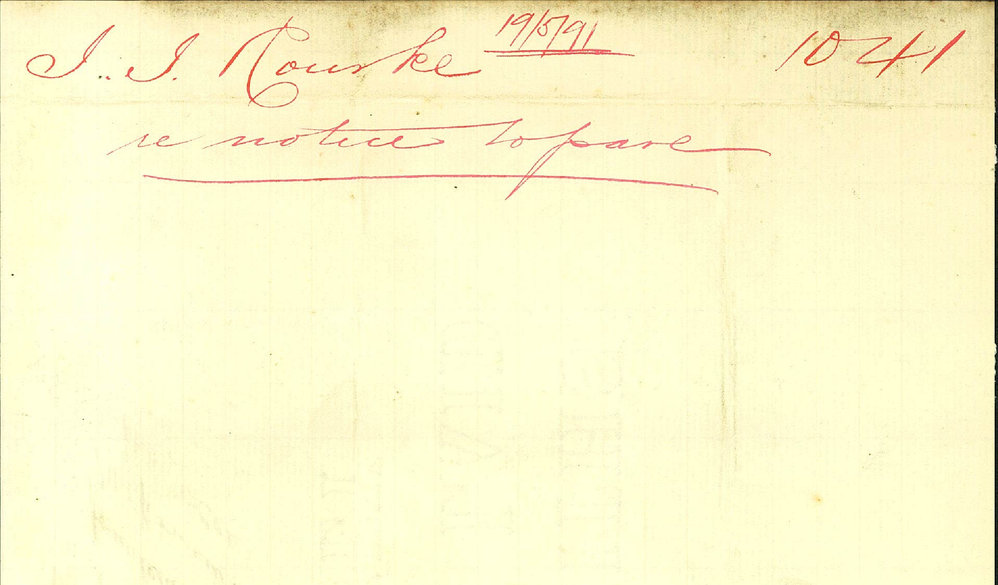 J. J. Rourke 19/5/91 1041
re notice to pave